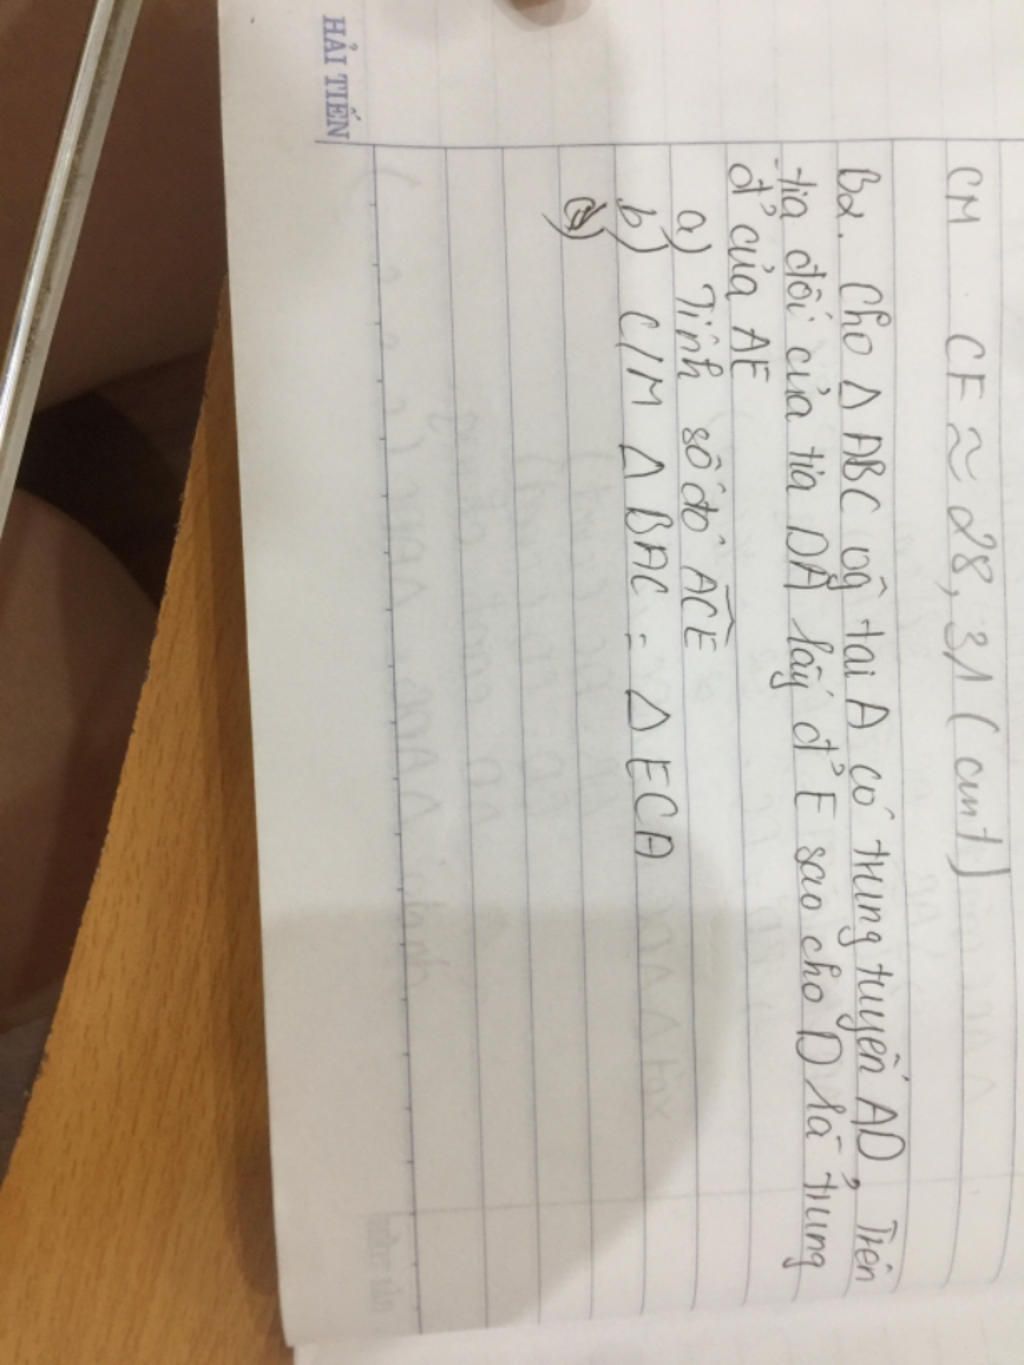 HẢI TIẾN
CM CF ≈ 28,31 (cmt)
B2. Cho Δ ABC vg tại A có trung tuyến AD, Trên
tia đối của tia DA lấy đ' E sao cho D là trung
đ' của AE
a) Tính số đo ACE
b) C/M Δ BAC = Δ ECA